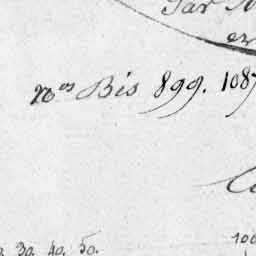 Par
n.os Bis 899. 1087
30. 40. 50.
100